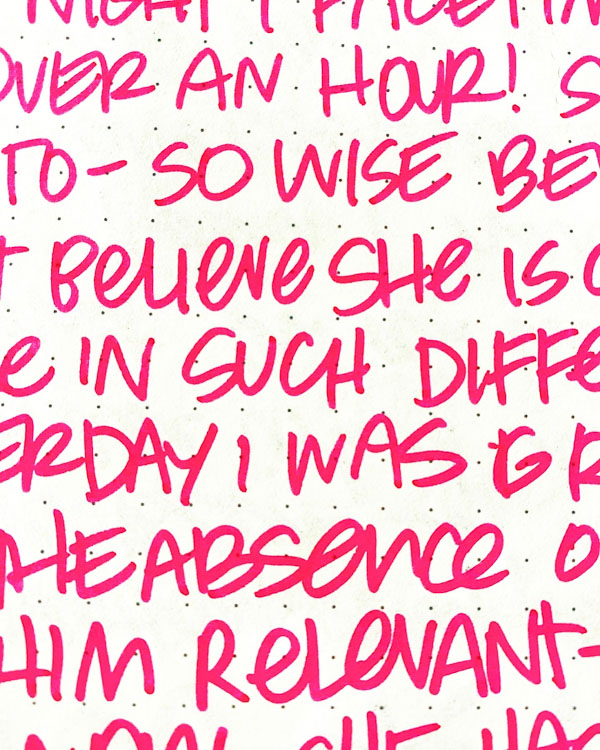 NIGHT I FACETIM
OVER AN HOUR! S
TO- SO WISE BEY
T BELIEVE SHE IS O
E IN SUCH DIFFE
ERDAY I WAS GR
HE ABSENCE O
HIM RELEVANT-
NOW. SHE HAS